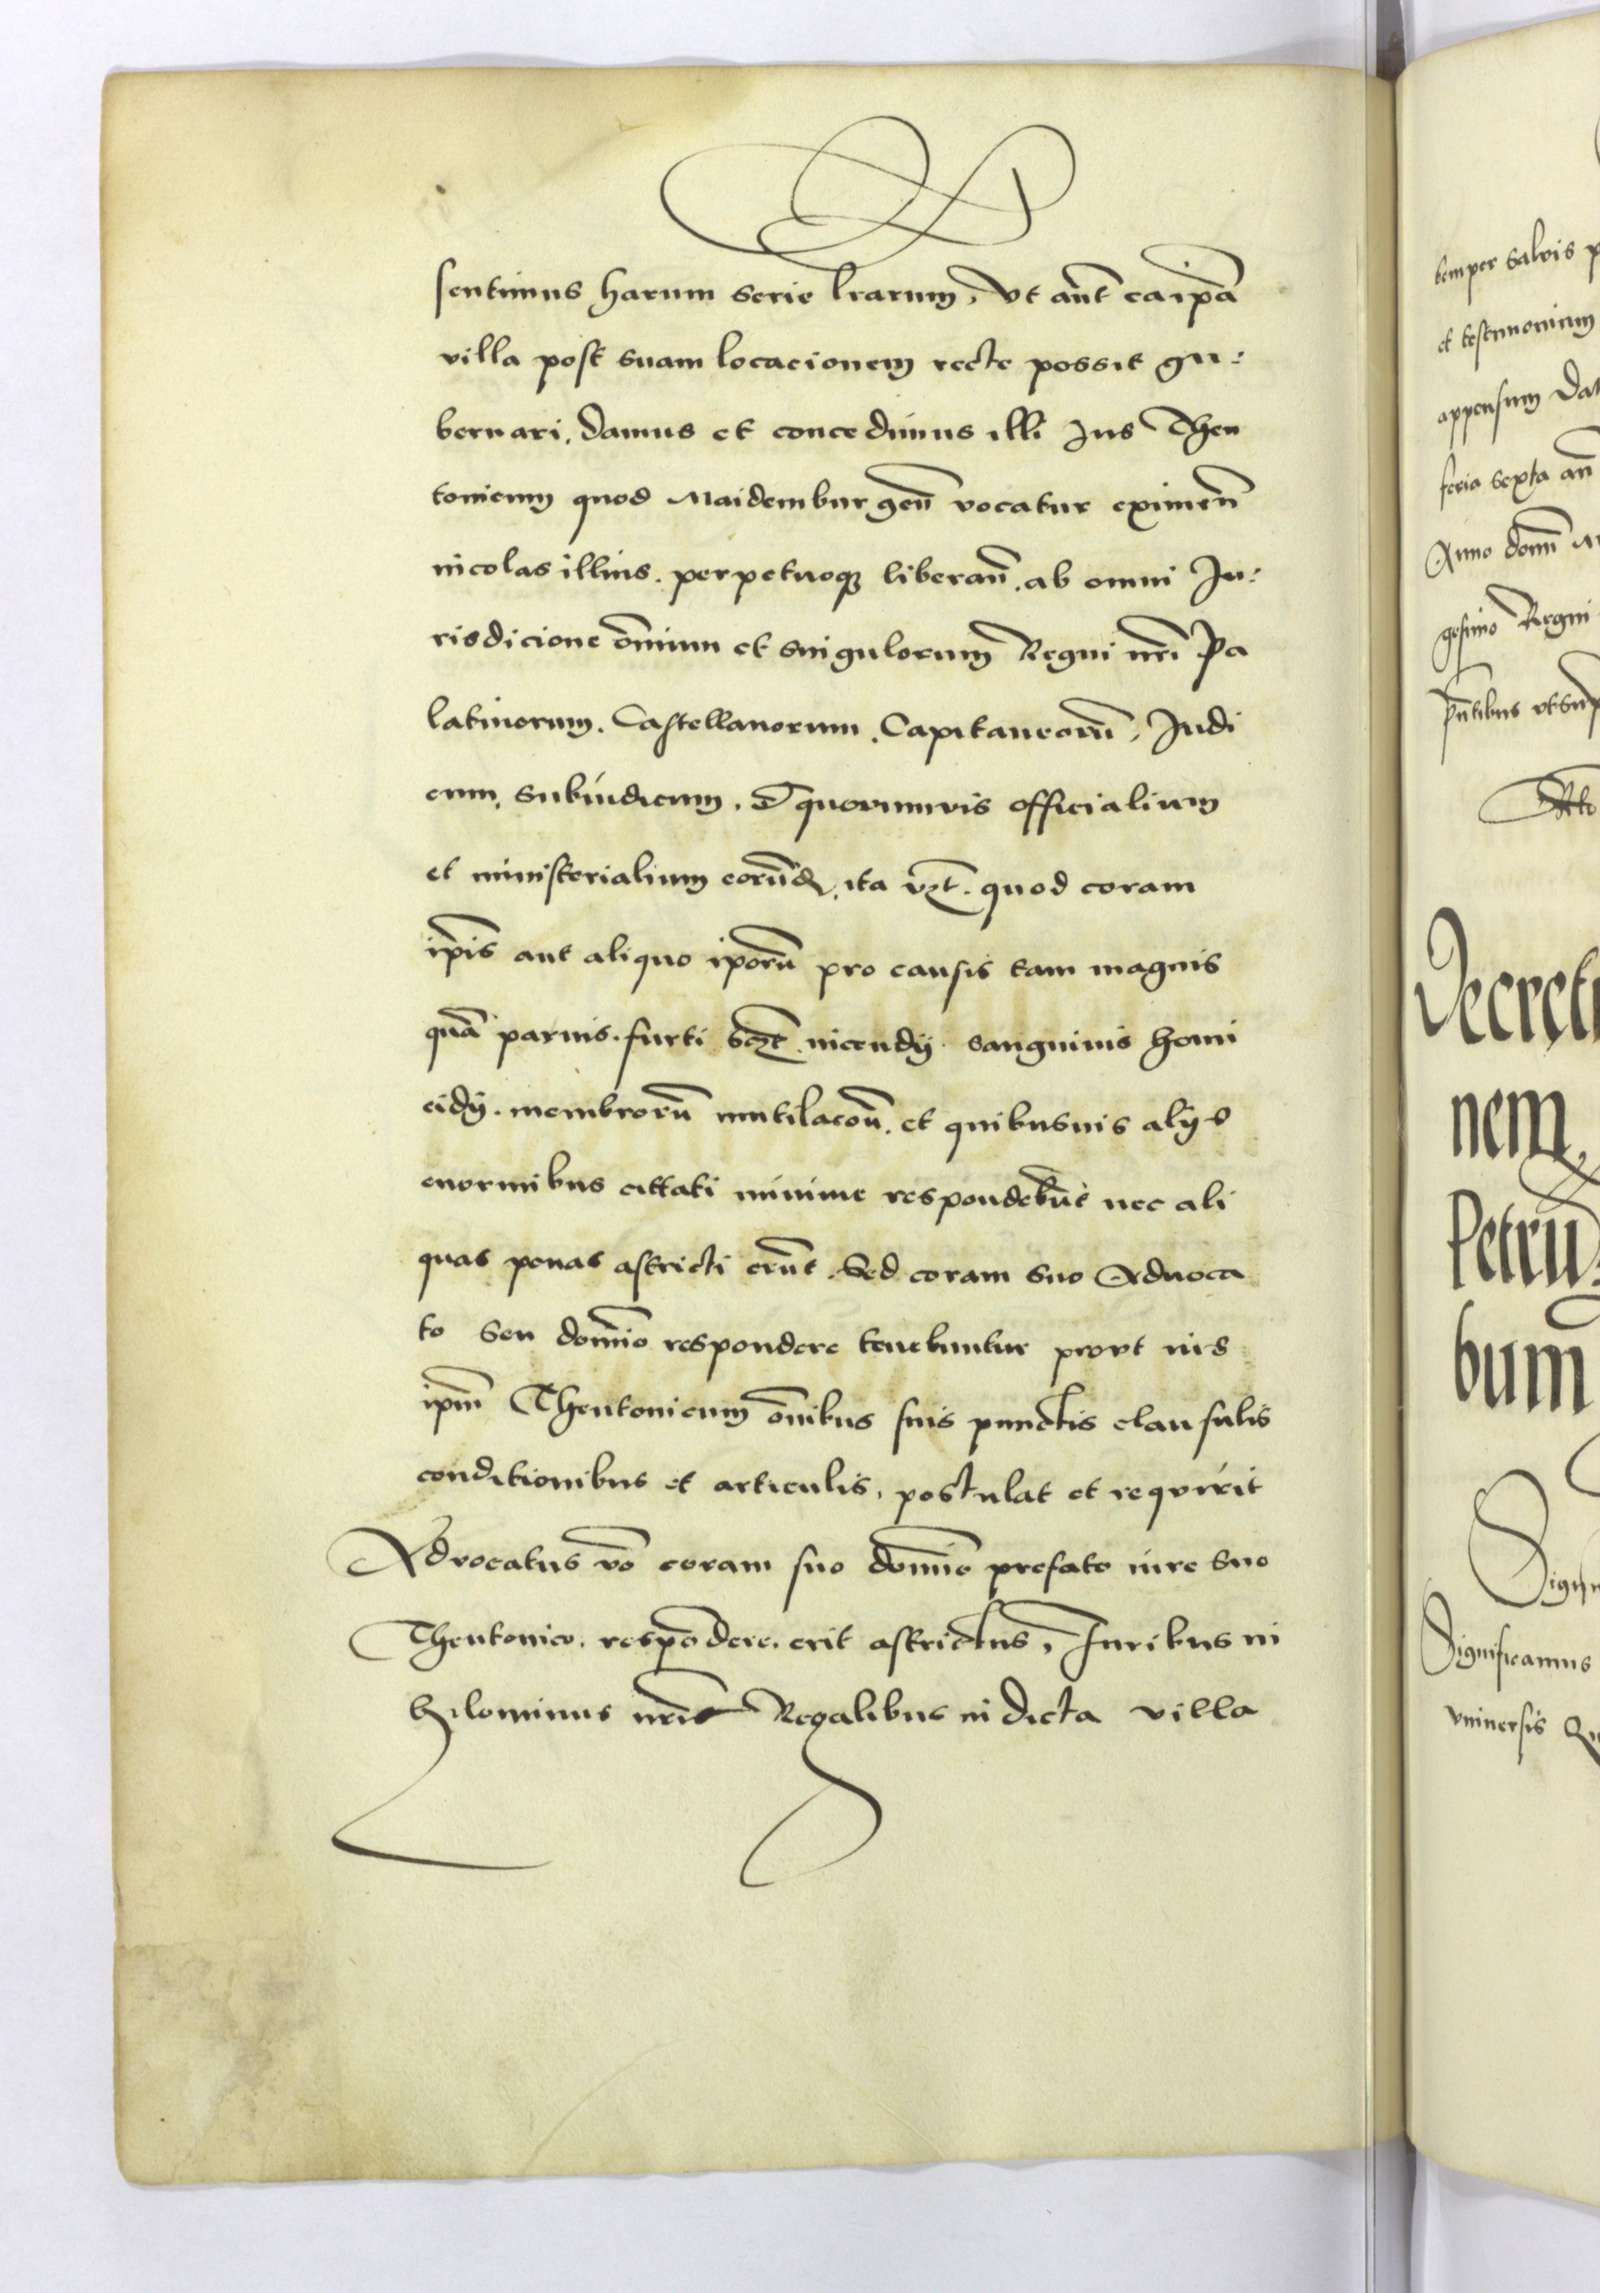 sentimus harum serie lr̃arum, Vt aut̃ ea ip̃a
villa post suam locacionem recte possit gu:
bernari, damus et concedimus illi Jus Theu
tonicum quod Maidemburgeñ vocatur eximeñ
incolas illius. perpetuoq̃ liberañ. ab omni Ju:
risdicione om̃ium et singulorum Regni nr̃i Pa
latinorum. Castellanorum. Capitaneorũ, Judi
cum, Subiudicum. Et quorumvis officialium
et ministerialium eorũd̃, ita vz̃t. quod coram
ip̃is aut aliquo ip̃orũ pro causis tam magnis
quã parvis. furti sc̃z incendÿ sanguinis homi
cidÿ. membrorũ mutilacoũ. et quibusuis alÿs
enormibus cittati minime respondebũt nec ali
quas penas astricti erũt. Sed coram suo Aduoca
to Seu domĩo respondere tenebuntur provt ius
ip̃m Theutonicum om̃ibus suis punctis clausulis
conditionibus et articulis, postulat et requirit
Advocatus vo᷃ coram suo domĩo prefato iure suo
Theutonico. respõdere. erit astrictus, Juribus ni
hilominus nr̃is Regalibus in dicta villa
semper salvis p
et testimonium
appensum Dat
feria sexta añ
Anno domĩ M
gesimo Regni
p̃ntibus vtsup
Decretu
nem
Petrũ
bum
Sign
Significamus
vniuersis Qu